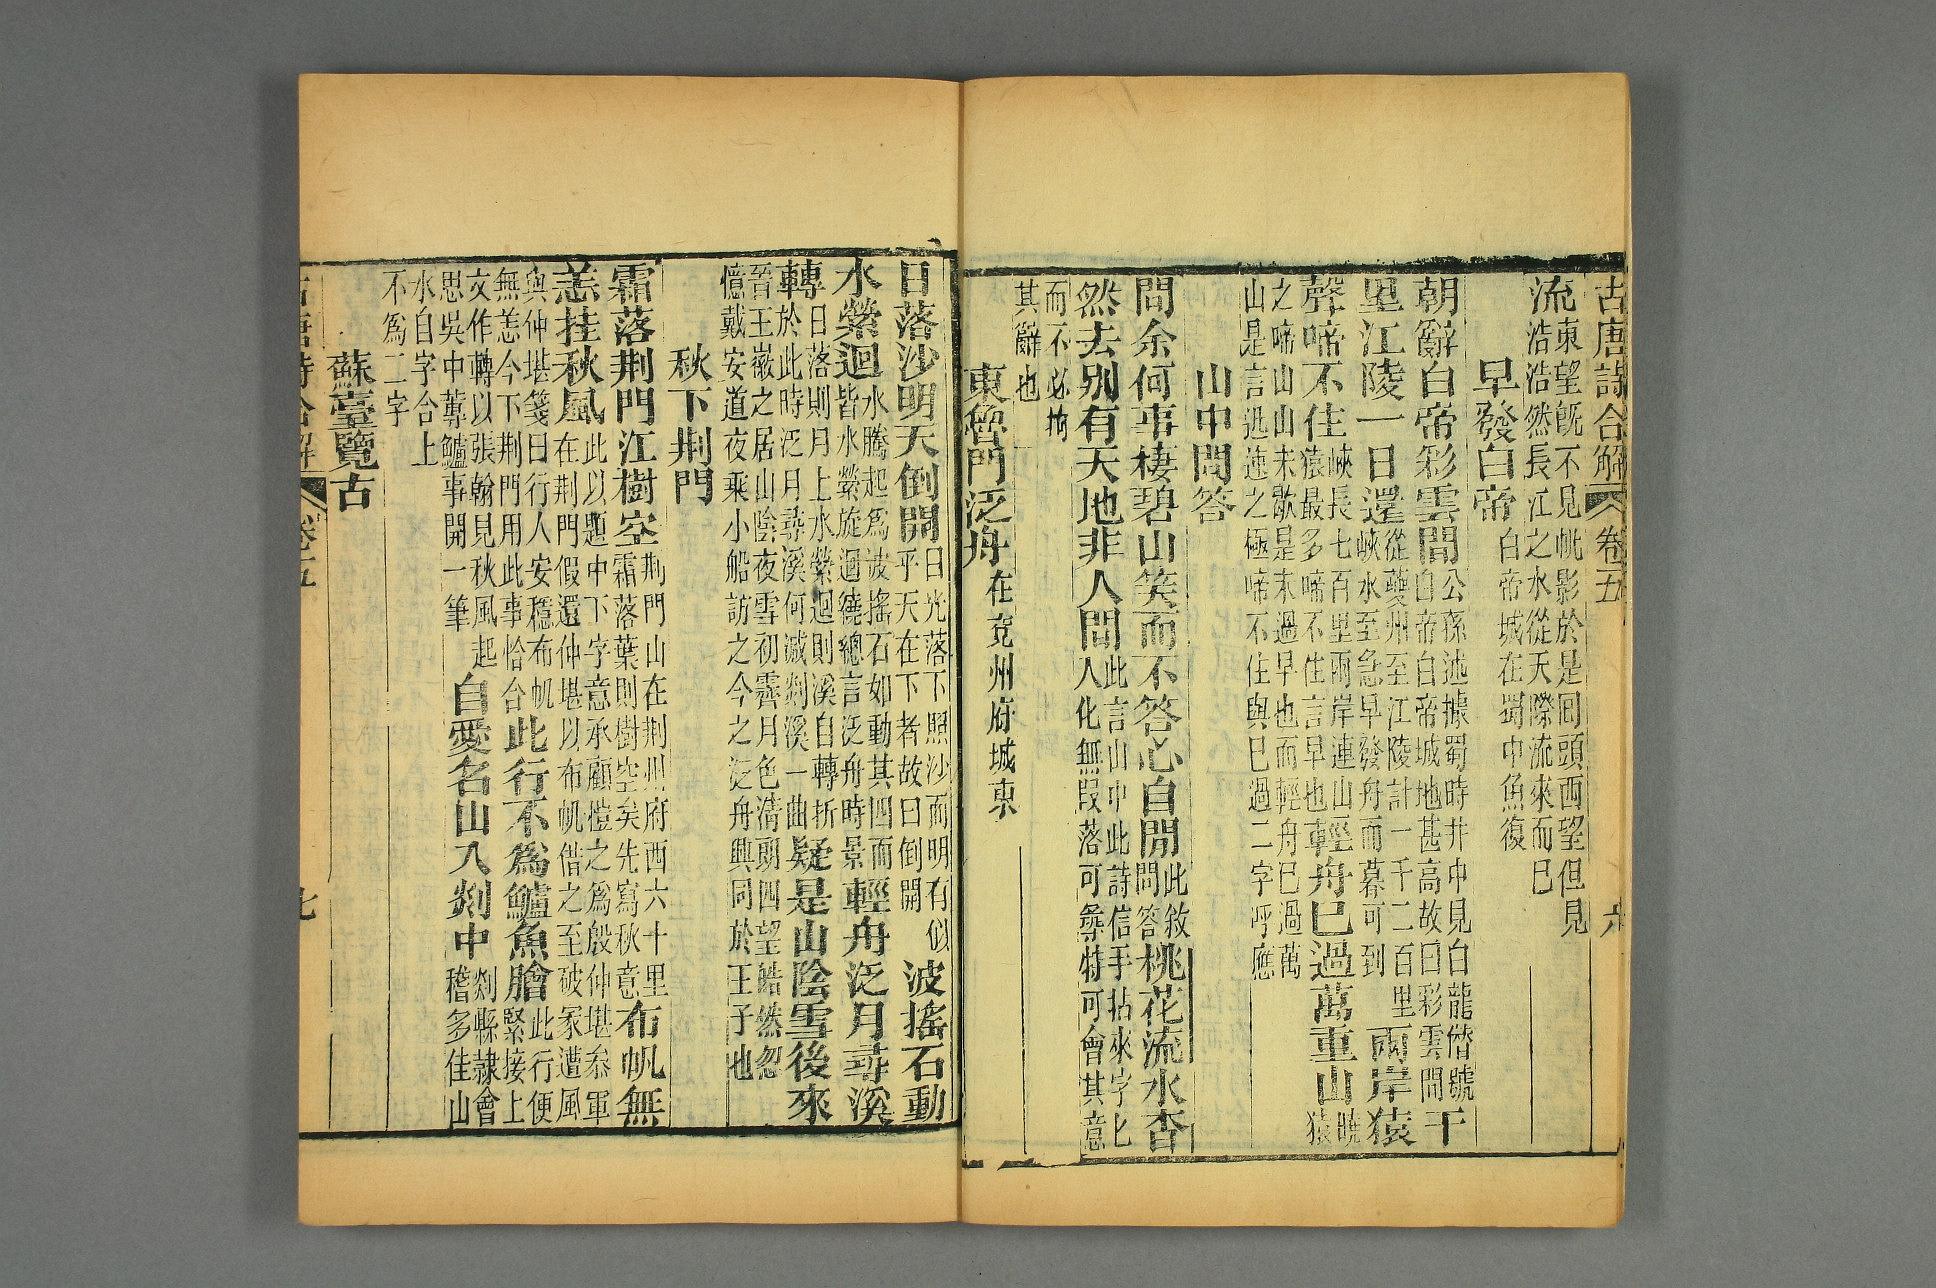 古唐詩合解 卷五 六
流東望既不見帆影於是回頭西望但見
浩浩然長江之水從天際流來而已
早發白帝白帝城在蜀中魚復
朝辭白帝彩雲間公孫述據蜀時井中見白龍僣號
白帝白帝城地甚高故曰彩雲間千
里江陵一日還從夔州至江陵計一千二百里
峽水至急早發舟而暮可到兩岸猿
聲啼不住峽長七百里兩岸連山
猿最多啼不住言早也輕舟已過萬重山曉
猿
之啼山山未歇是末過早也而輕舟已過萬
山是言迅速之極啼不住與已過二字呼應
山中問答
問余何事棲碧山笑而不答心自閒此敘
問答桃花流水杳
然去别有天地非人間此言山中此詩信手拈來字匕
人化無叚落可彛特可會其意
而不必拘
其辭也
東魯門泛舟在兗州府城東
日落沙明天倒開日光落下照沙而明有似
乎天在下者故曰倒開波搖石動
水縈迴水騰起爲波搖石如動其四而
皆水縈旋迴繞總言泛舟時景輕舟泛月尋溪
轉日落則月上水縈迴則溪自轉折
於此時泛月尋溪何减剡溪一曲疑是山陰雪後來
晉王徽之居山陰夜雪初霽月色清朗四望皓然忽
憶戴安道夜乘小船訪之今之泛舟興同於王子也
秋下荆門
霜落荆門江樹空荆門山在荆州府西六十里
霜落葉則樹空矣先寫秋意布帆無
恙挂秋風此以題中下字意承顧愷之爲殷仲堪叅軍
在荆門假還仲堪以布帆借之至破冢遭風
與仲堪箋曰行人安穩布帆
無恙今下荆門用此事恰合此行不爲鱸魚膾此行便
緊接上
文作轉以張翰見秋風起
思吳中蓴鱸事開一筆自愛名山入剡中剡縣隷會
稽多佳山
水自字合上
不爲二字
蘇臺覽古
古唐詩合解 卷五 七